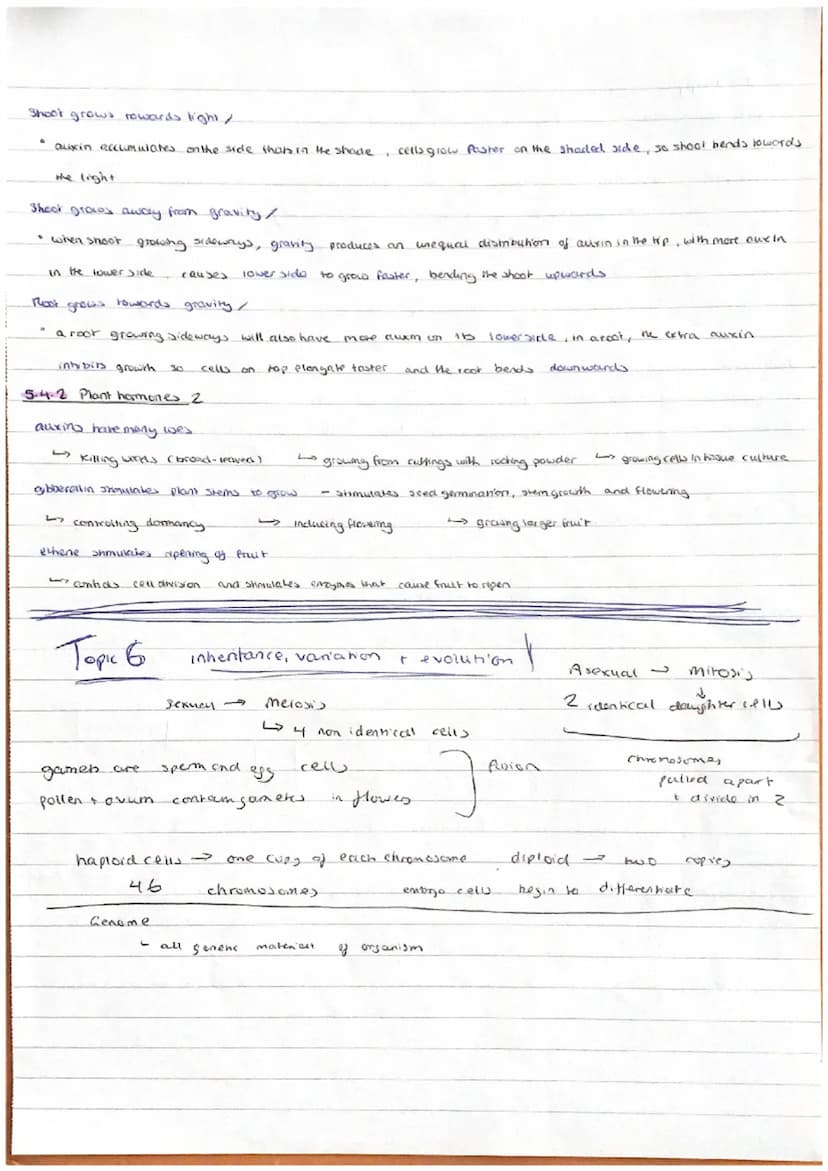 Shoot grows towards light /
• auxin accumulates on the side thats in the shade, cells grow faster on the shaded side, so shoot bends towards
the light
Shoot grows away from gravity /
• when shoot growing sideways, gravity produces an unequal distribution of auxin in the tip, with more auxin
in the lower side, causes lower side to grow faster, bending the shoot upwards
Root grows towards gravity /
• a root growing sideways will also have more auxin on its lower side, in a root, the extra auxin
inhibits growth so cells on top elongate faster and the root bends downwards
5.4.2 Plant hormones 2
auxins have many uses
↳ killing weeds (broad-leaved) ↳ growing from cuttings with rooting powder ↳ growing cells in tissue culture
gibberellin stimulates plant stems to grow - stimulates seed germination, stem growth and flowering
↳ controlling dormancy ↳ inducing flowering ↳ growing larger fruit
ethene stimulates ripening of fruit
↳ controls cell division and stimulates enzymes that cause fruit to ripen
Topic 6 inheritance, variation + evolution
Asexual → mitosis
↓
2 identical daughter cells
sexual → meiosis
↳ 4 non identical cells
gametes are sperm and egg cells
pollen + ovum contain gametes in flowers
fusion
chromosomes
pulled apart
+ divide in 2
haploid cells → one copy of each chromosome diploid → two copies
46 chromosomes embryo cells begin to differentiate
Genome
- all genetic material of organism